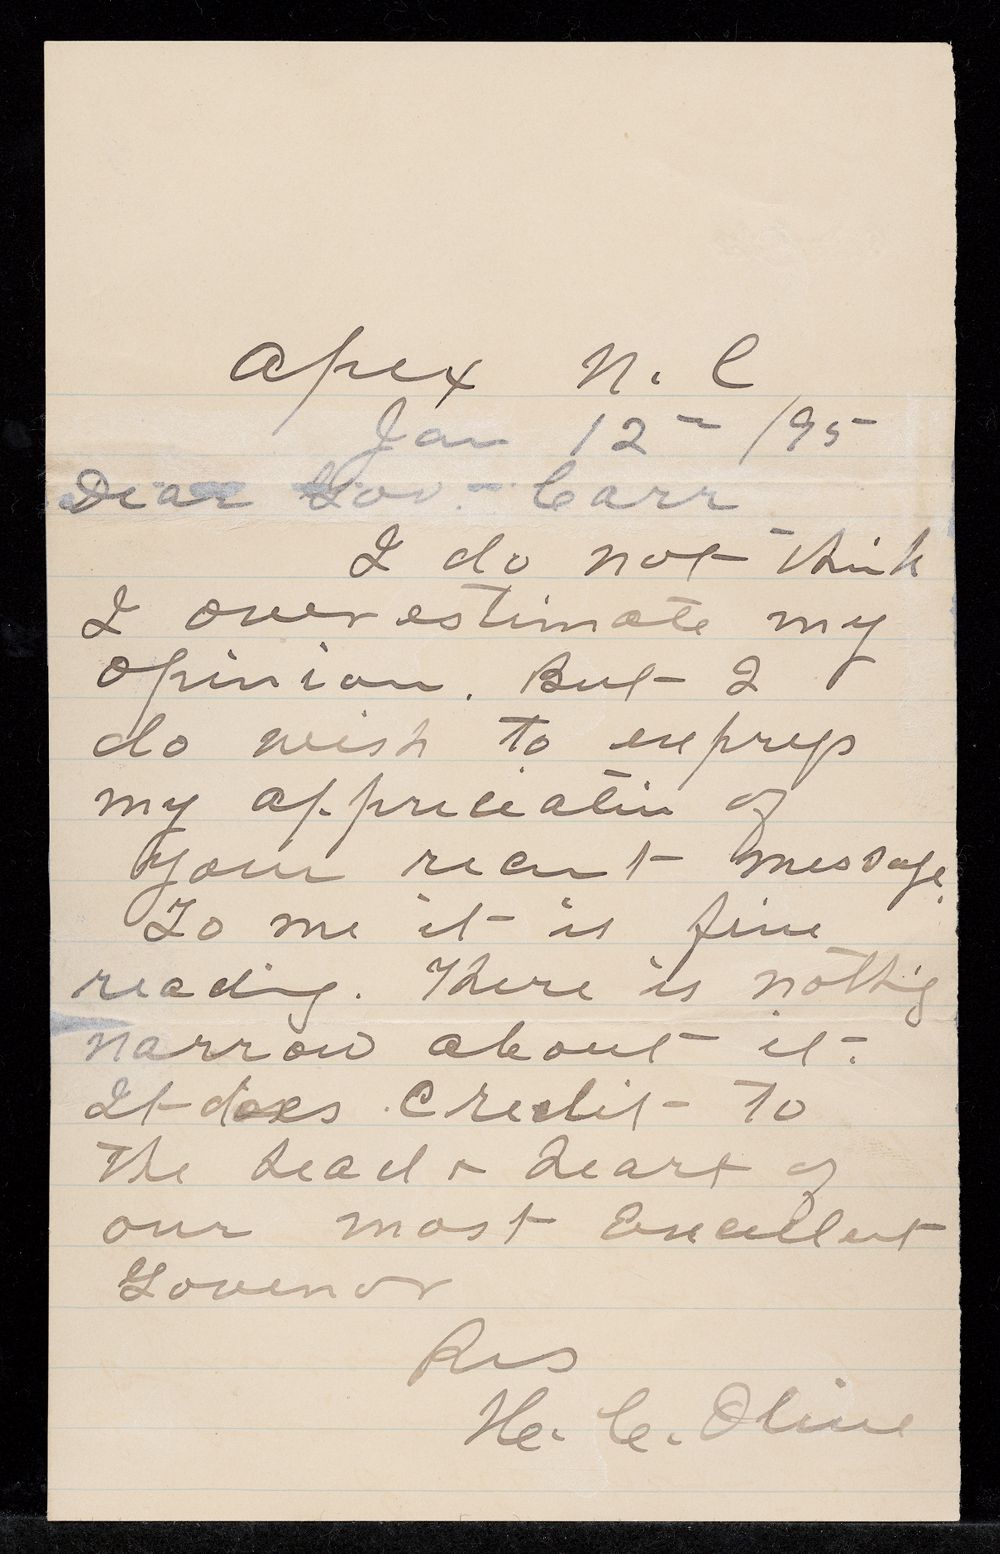 Apex N. C
Jan 12th /95
Dear Gov. Carr
I do not think
I overestimate my
opinion. But I
do wish to express
my appriciatin of
your recent message.
To me it is fine
reading. There is nothig
narrow about it.
It does credit to
the head & heart of
our most Excellent
Govenor
Res
H. C. Olive